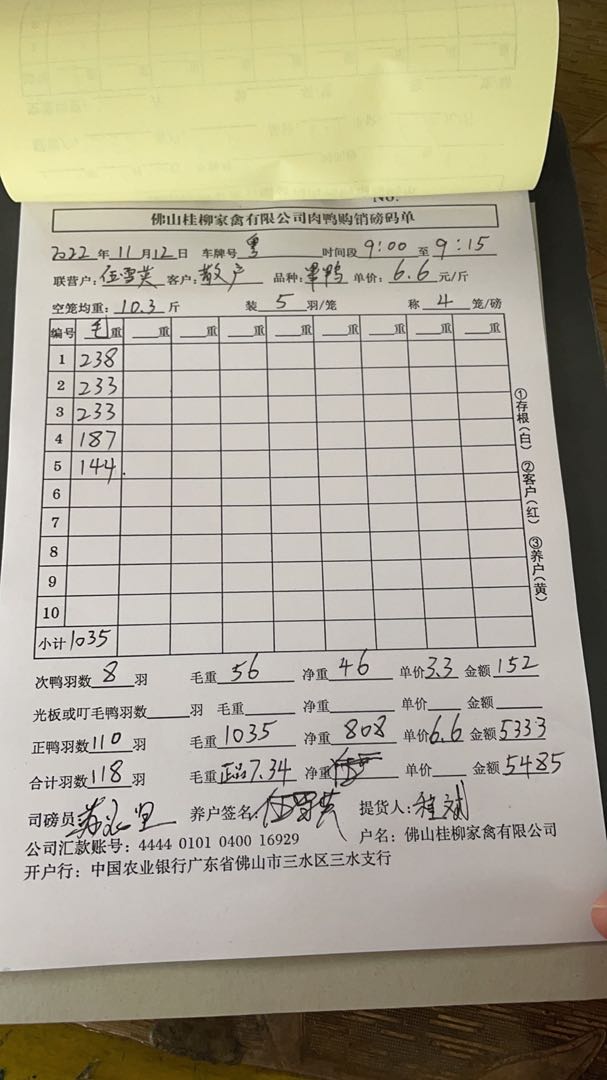 No.
佛山桂柳家禽有限公司肉鸭购销磅码单
2022年11月12日 车牌号 粤 时间段 9:00 至 9:15
联营户: 伍雪英 客户: 散户 品种: 鸭 单价: 6.6 元/斤
空笼均重: 10.3 斤 装 5 羽/笼 称 4 笼/磅
编号 毛重 重 重 重 重 重 重 重 重
1 238
2 233
3 233
4 187
5 144.
6
7
8
9
10
小计 1035
①存根(白) ②客户(红) ③养户(黄)
次鸭羽数 8 羽 毛重 56 净重 46 单价 3.3 金额 152
光板或叮毛鸭羽数 羽 毛重 净重 单价 金额
正鸭羽数 110 羽 毛重 1035 净重 808 单价 6.6 金额 5333
合计羽数 118 羽 毛重 正品7.34 净重 单价 金额 5485
司磅员 养户签名: 伍雪英 提货人: 程斌
公司汇款账号: 4444 0101 0400 16929 户名: 佛山桂柳家禽有限公司
开户行: 中国农业银行广东省佛山市三水区三水支行